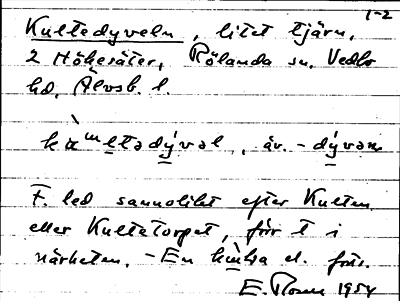 1-2
Kultedyveln, litet tjärn,
2 Hökesäter, Rölanda sn, Vedbo
hd, Älvsb. l.
dýval, äv. - dývan
F. led sannolikt efter Kulten
eller Kultetorpet, förr t i
närheten. - En el. förr.
E. Rosen 1954